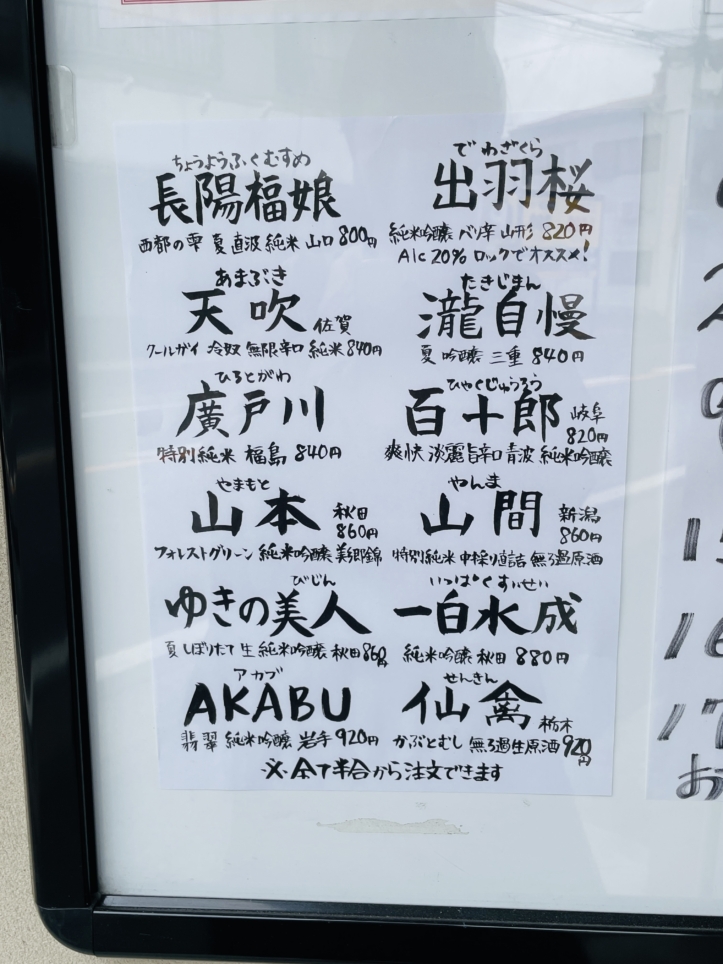 ちょうようふくむすめ
長陽福娘
西都の雫 夏 直汲 純米 山口 800円
でわざくら
出羽桜
純米吟醸 バリ辛 山形 820円
Alc 20% ロックでオススメ!
あまぶき
天吹 佐賀
クールガイ 冷奴 無限辛口 純米 840円
たきじまん
瀧自慢
夏 吟醸 三重 840円
ひろとがわ
廣戸川
特別純米 福島 840円
ひゃくじゅうろう
百十郎 岐阜
820円
爽快 淡麗旨辛口 青波 純米吟醸
やまもと
山本 秋田
860円
フォレストグリーン 純米吟醸 美郷錦
やんま
山間 新潟
860円
特別純米 中採り直詰 無ろ過原酒
びじん
ゆきの美人
夏 しぼりたて 生 純米吟醸 秋田 860円
いっぱくすいせい
一白水成
純米吟醸 秋田 880円
アカブ
AKABU
翡翠 純米吟醸 岩手 920円
せんきん
仙禽 栃木
かぶとむし 無ろ過生原酒 920円
※全て半合から注文できます